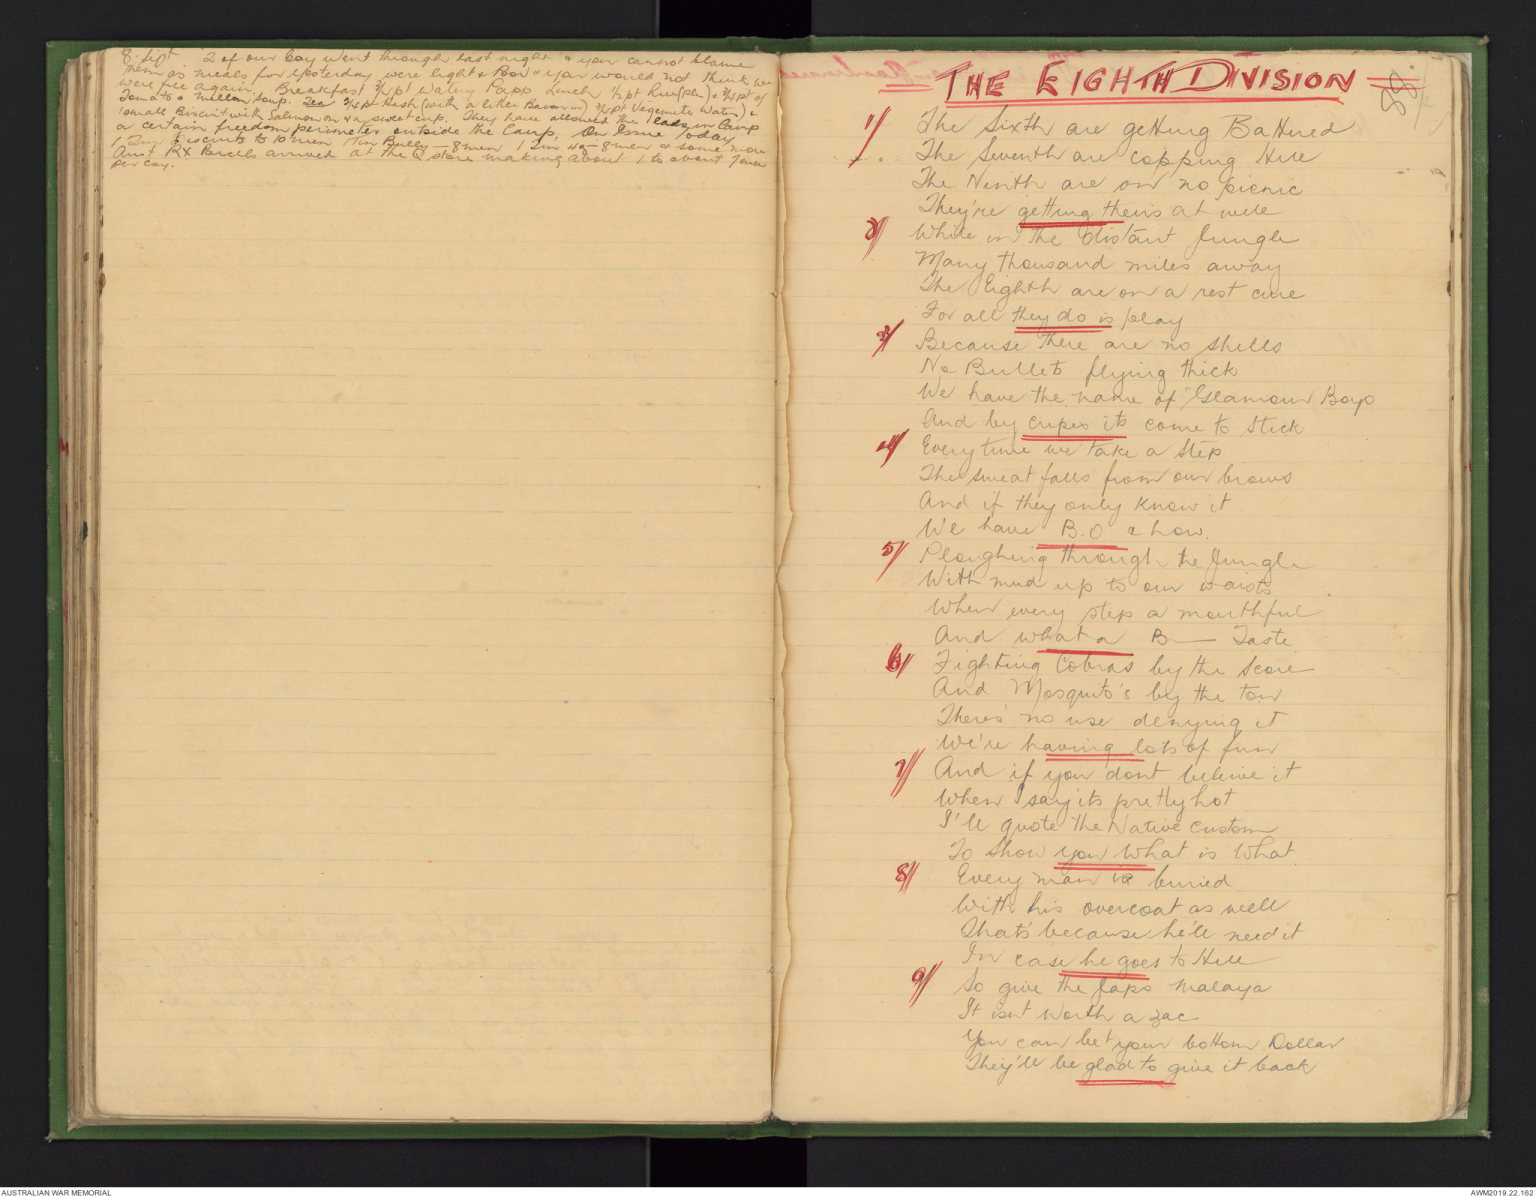 8 Sept 2 of our Coy went through last night & you cannot blame
them as meals for yesterday were light & Poor & you would not think we
were free again. Breakfast 3/4pt Watery Papp Lunch 1/2pt Rice (pln) & 3/4pt of
Tomato & Mellon Soup. Tea 3/4pt Hash (with a little Bacon in) 3/4pt Vegemite Water) &
1 small Biscuit with Salmon on & a sweet cup. They have allowed the lads in Camp
a certain freedom perimeter outside the Camp. Our Issue Today
1 Tin Biscuits to 10 men 1 Tin Bully – 8 men 1 Tin – 8 men & some more
Aust RX Parcels arrived at the Q store making about 1 to about 7 men
per Coy.
88.
THE EIGHTH DIVISION
1/ The Sixth are getting Battered
The Seventh are copping Hell
The Ninth are on no picnic
They're getting theirs as well
2/ While in the distant Jungle
Many thousand miles away
The Eighth are on a rest cure
For all they do is play
3/ Because there are no shells
No Bullets flying thick
We have the name of "Glamour Boys
And by cripes its come to stick
4/ Every time we take a step
The sweat falls from our brows
And if they only know it
We have B.O & how.
5/ Ploughing through the Jungle
With mud up to our waists
When every step a mouthful
And what a B— Taste
6/ Fighting Cobras by the score
And Mosquito's by the ton
Theres no use denying it
We're having lots of fun
7/ And if you dont believe it
When I say its pretty hot
I'll quote the Native custom
To show you what is what.
8/ Every man is buried
With his overcoat as well
Thats because he'll need it
In case he goes to Hell
9/ So give the Japs Malaya
It isnt worth a zac
You can bet your bottom Dollar
They'll be glad to give it back
AUSTRALIAN WAR MEMORIAL
AWM2019.22.162